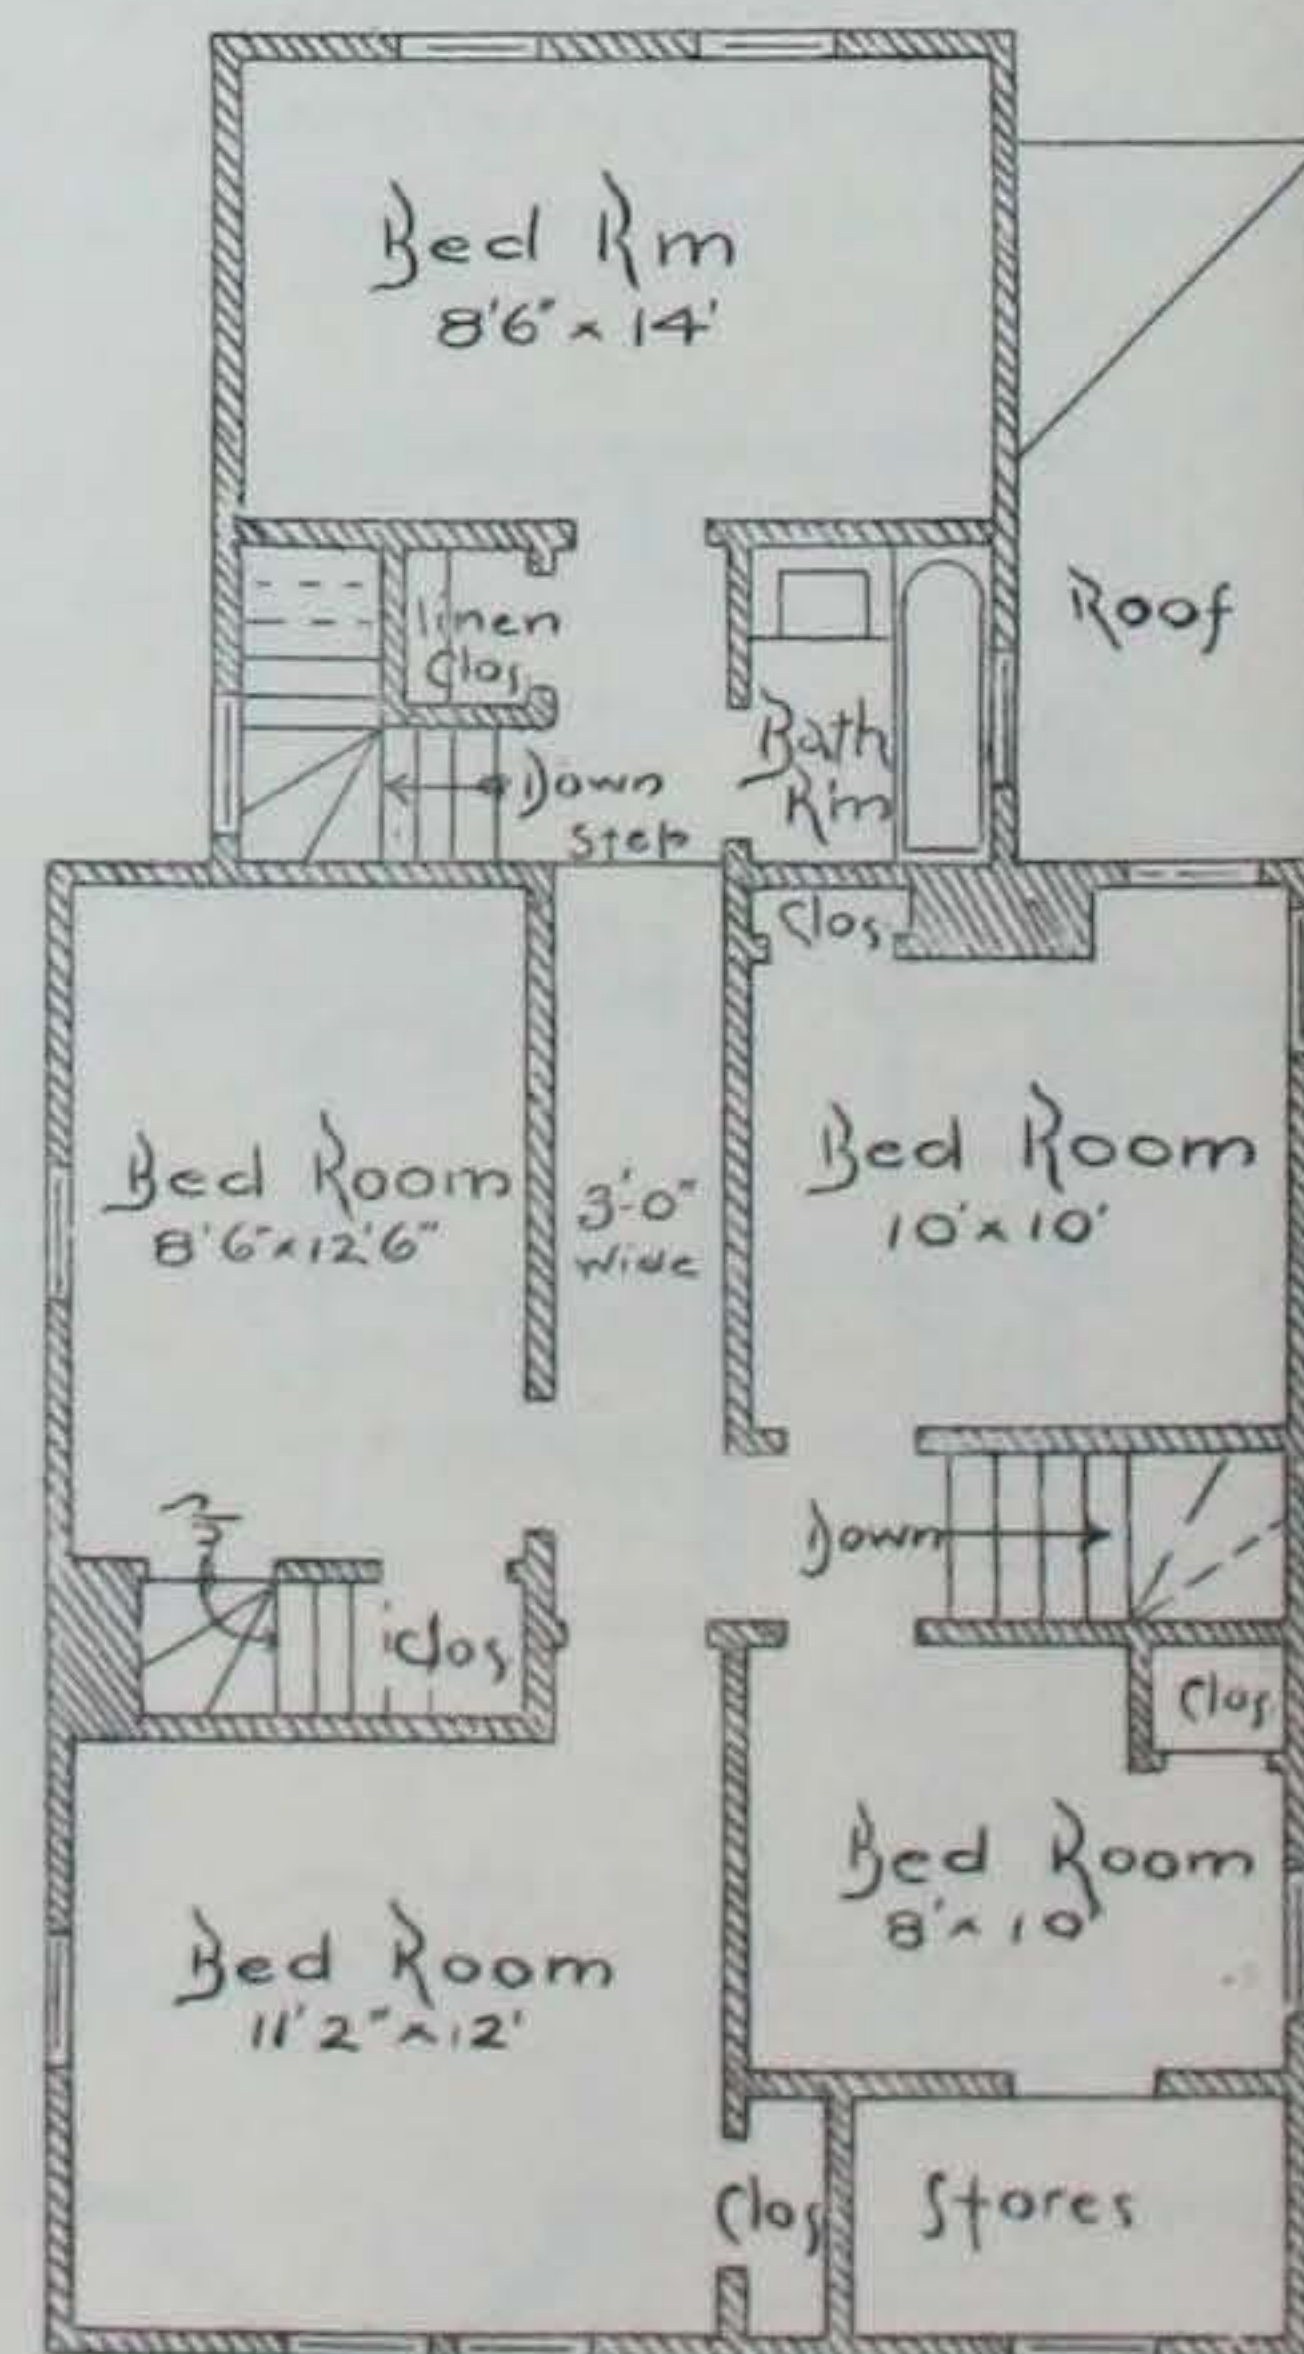 Bed Rm
8'6" x 14'
Roof
linen
Clos
Bath
R'm
Down
Step
Clos
Bed Room
8'6" x 12'6"
3'-0"
Wide
Bed Room
10' x 10'
Down
Clos
Clos
Bed Room
8' x 10'
Bed Room
11'2" x 12'
Clos
Stores